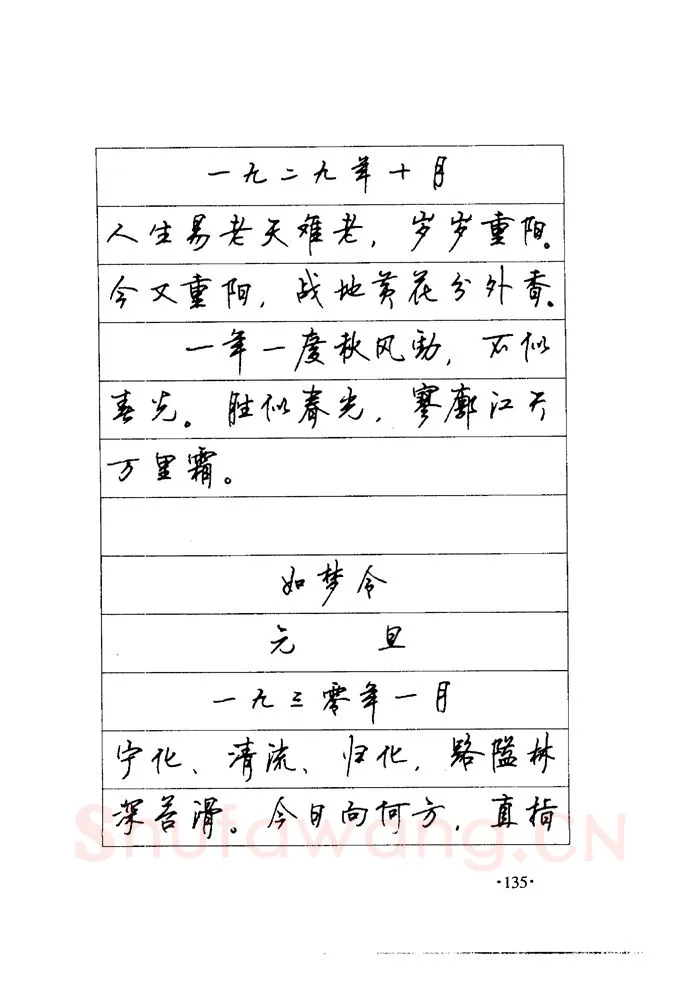 一九二九年十月
人生易老天难老，岁岁重阳。
今又重阳，战地黄花分外香。
一年一度秋风劲，不似
春光。胜似春光，寥廓江天
万里霜。
如梦令
元 旦
一九三零年一月
宁化、清流、归化，路隘林
深苔滑。今日向何方，直指
Shufawang.CN
·135·